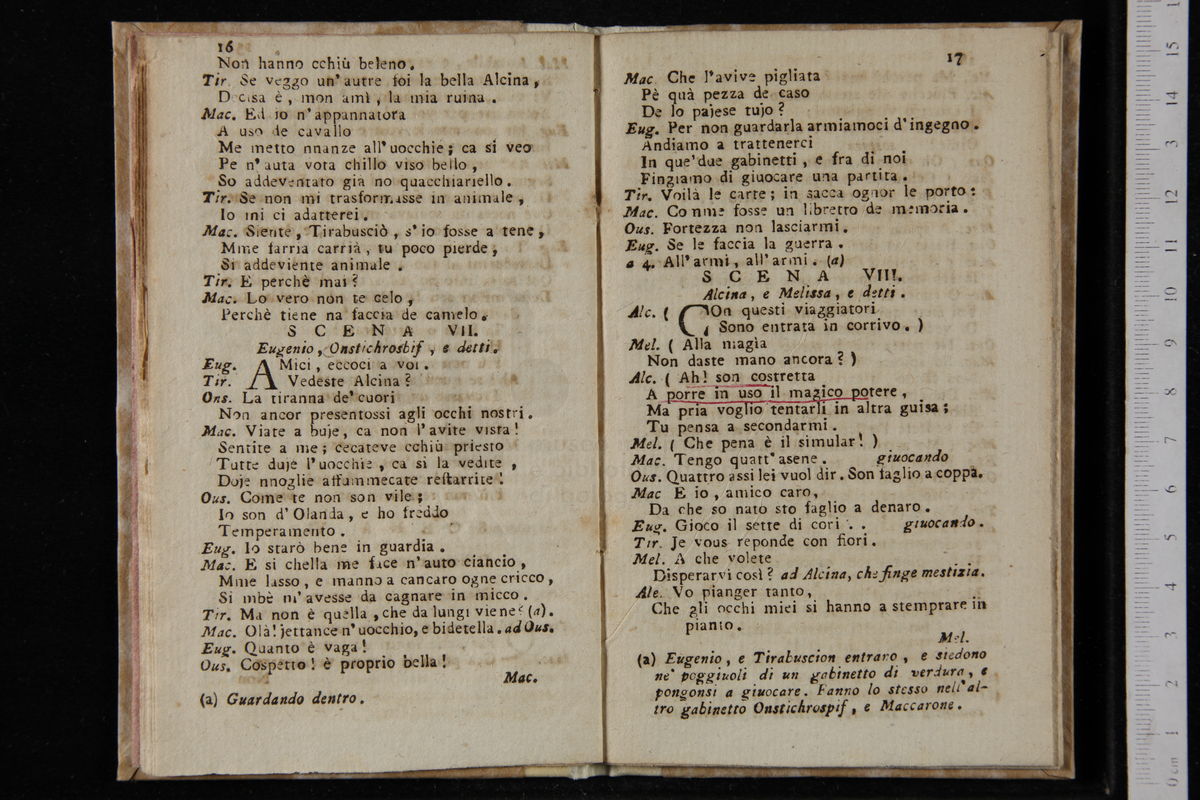 16
Non hanno cchiù beleno.
Tir. Se veggo un' autre foi la bella Alcina,
Decisa è, mon amì, la mia ruina.
Mac. Ed io n'appannatora
A uso de cavallo
Me metto nnanze all' uocchie; ca si veo
Pe n' auta vota chillo viso bello,
So addeventato già no quacchiariello.
Tir. Se non mi trasformasse in animale,
Io mi ci adatterei.
Mac. Siente, Tirabusciò, s' io fosse a tene,
Mme farria carrià, tu poco pierde,
Si addeviente animale.
Tir. E perchè mai?
Mac. Lo vero non te celo,
Perchè tiene na faccia de camelo.
S C E N A VII.
Eugenio, Onstichrosbif, e detti.
Eug. AMici, eccoci a voi.
Tir. Vedeste Alcina?
Ons. La tiranna de' cuori
Non ancor presentossi agli occhi nostri.
Mac. Viate a buje, ca non l' avite vista!
Sentite a me; cecateve cchiù priesto
Tutte duje l' uocchie, ca si la vedite,
Doje nnoglie affummecate restarrite!
Ous. Come te non son vile;
Io son d' Olanda, e ho freddo
Temperamento.
Eug. Io starò bene in guardia.
Mac. E si chella me face n' auto ciancio,
Mme lasso, e manno a cancaro ogne cricco,
Si mbè m' avesse da cagnare in micco.
Tir. Ma non è quella, che da lungi viene? (a).
Mac. Olà! jettance n' uocchio, e bidetella. ad Ous.
Eug. Quanto è vaga!
Ous. Cospetto! è proprio bella!
Mac.
(a) Guardando dentro.
17
Mac Che l'avive pigliata
Pè quà pezza de caso
De lo pajese tujo?
Eug. Per non guardarla armiamoci d' ingegno.
Andiamo a trattenerci
In que' due gabinetti, e fra di noi
Fingiamo di giuocare una partita.
Tir. Voilà le carte; in sacca ognor le porto:
Mac. Comme fosse un libretto de memoria.
Ous. Fortezza non lasciarmi.
Eug. Se le faccia la guerra.
a 4. All' armi, all' armi. (a)
S C E N A VIII.
Alcina, e Melissa, e detti.
Alc. ( COn questi viaggiatori
Sono entrata in corrivo. )
Mel. ( Alla magìa
Non daste mano ancora? )
Alc. ( Ah! son costretta
A porre in uso il magico potere,
Ma pria voglio tentarli in altra guisa;
Tu pensa a secondarmi.
Mel. ( Che pena è il simular! )
Mac. Tengo quatt' asene. giuocando
Ous. Quattro assi lei vuol dir. Son faglio a coppa.
Mac E io, amico caro,
Da che so nato sto faglio a denaro.
Eug. Gioco il sette di cori . . giuocando.
Tir. Je vous reponde con fiori.
Mel. A che volete
Disperarvi così? ad Alcina, che finge mestizia.
Ale. Vo pianger tanto,
Che gli occhi miei si hanno a stemprare in
pianto.
Mel.
(a) Eugenio, e Tirabuscion entrano, e siedono
ne' poggiuoli di un gabinetto di verdura, e
pongonsi a giuocare. Fanno lo stesso nell' al-
tro gabinetto Onstichrospif, e Maccarone.